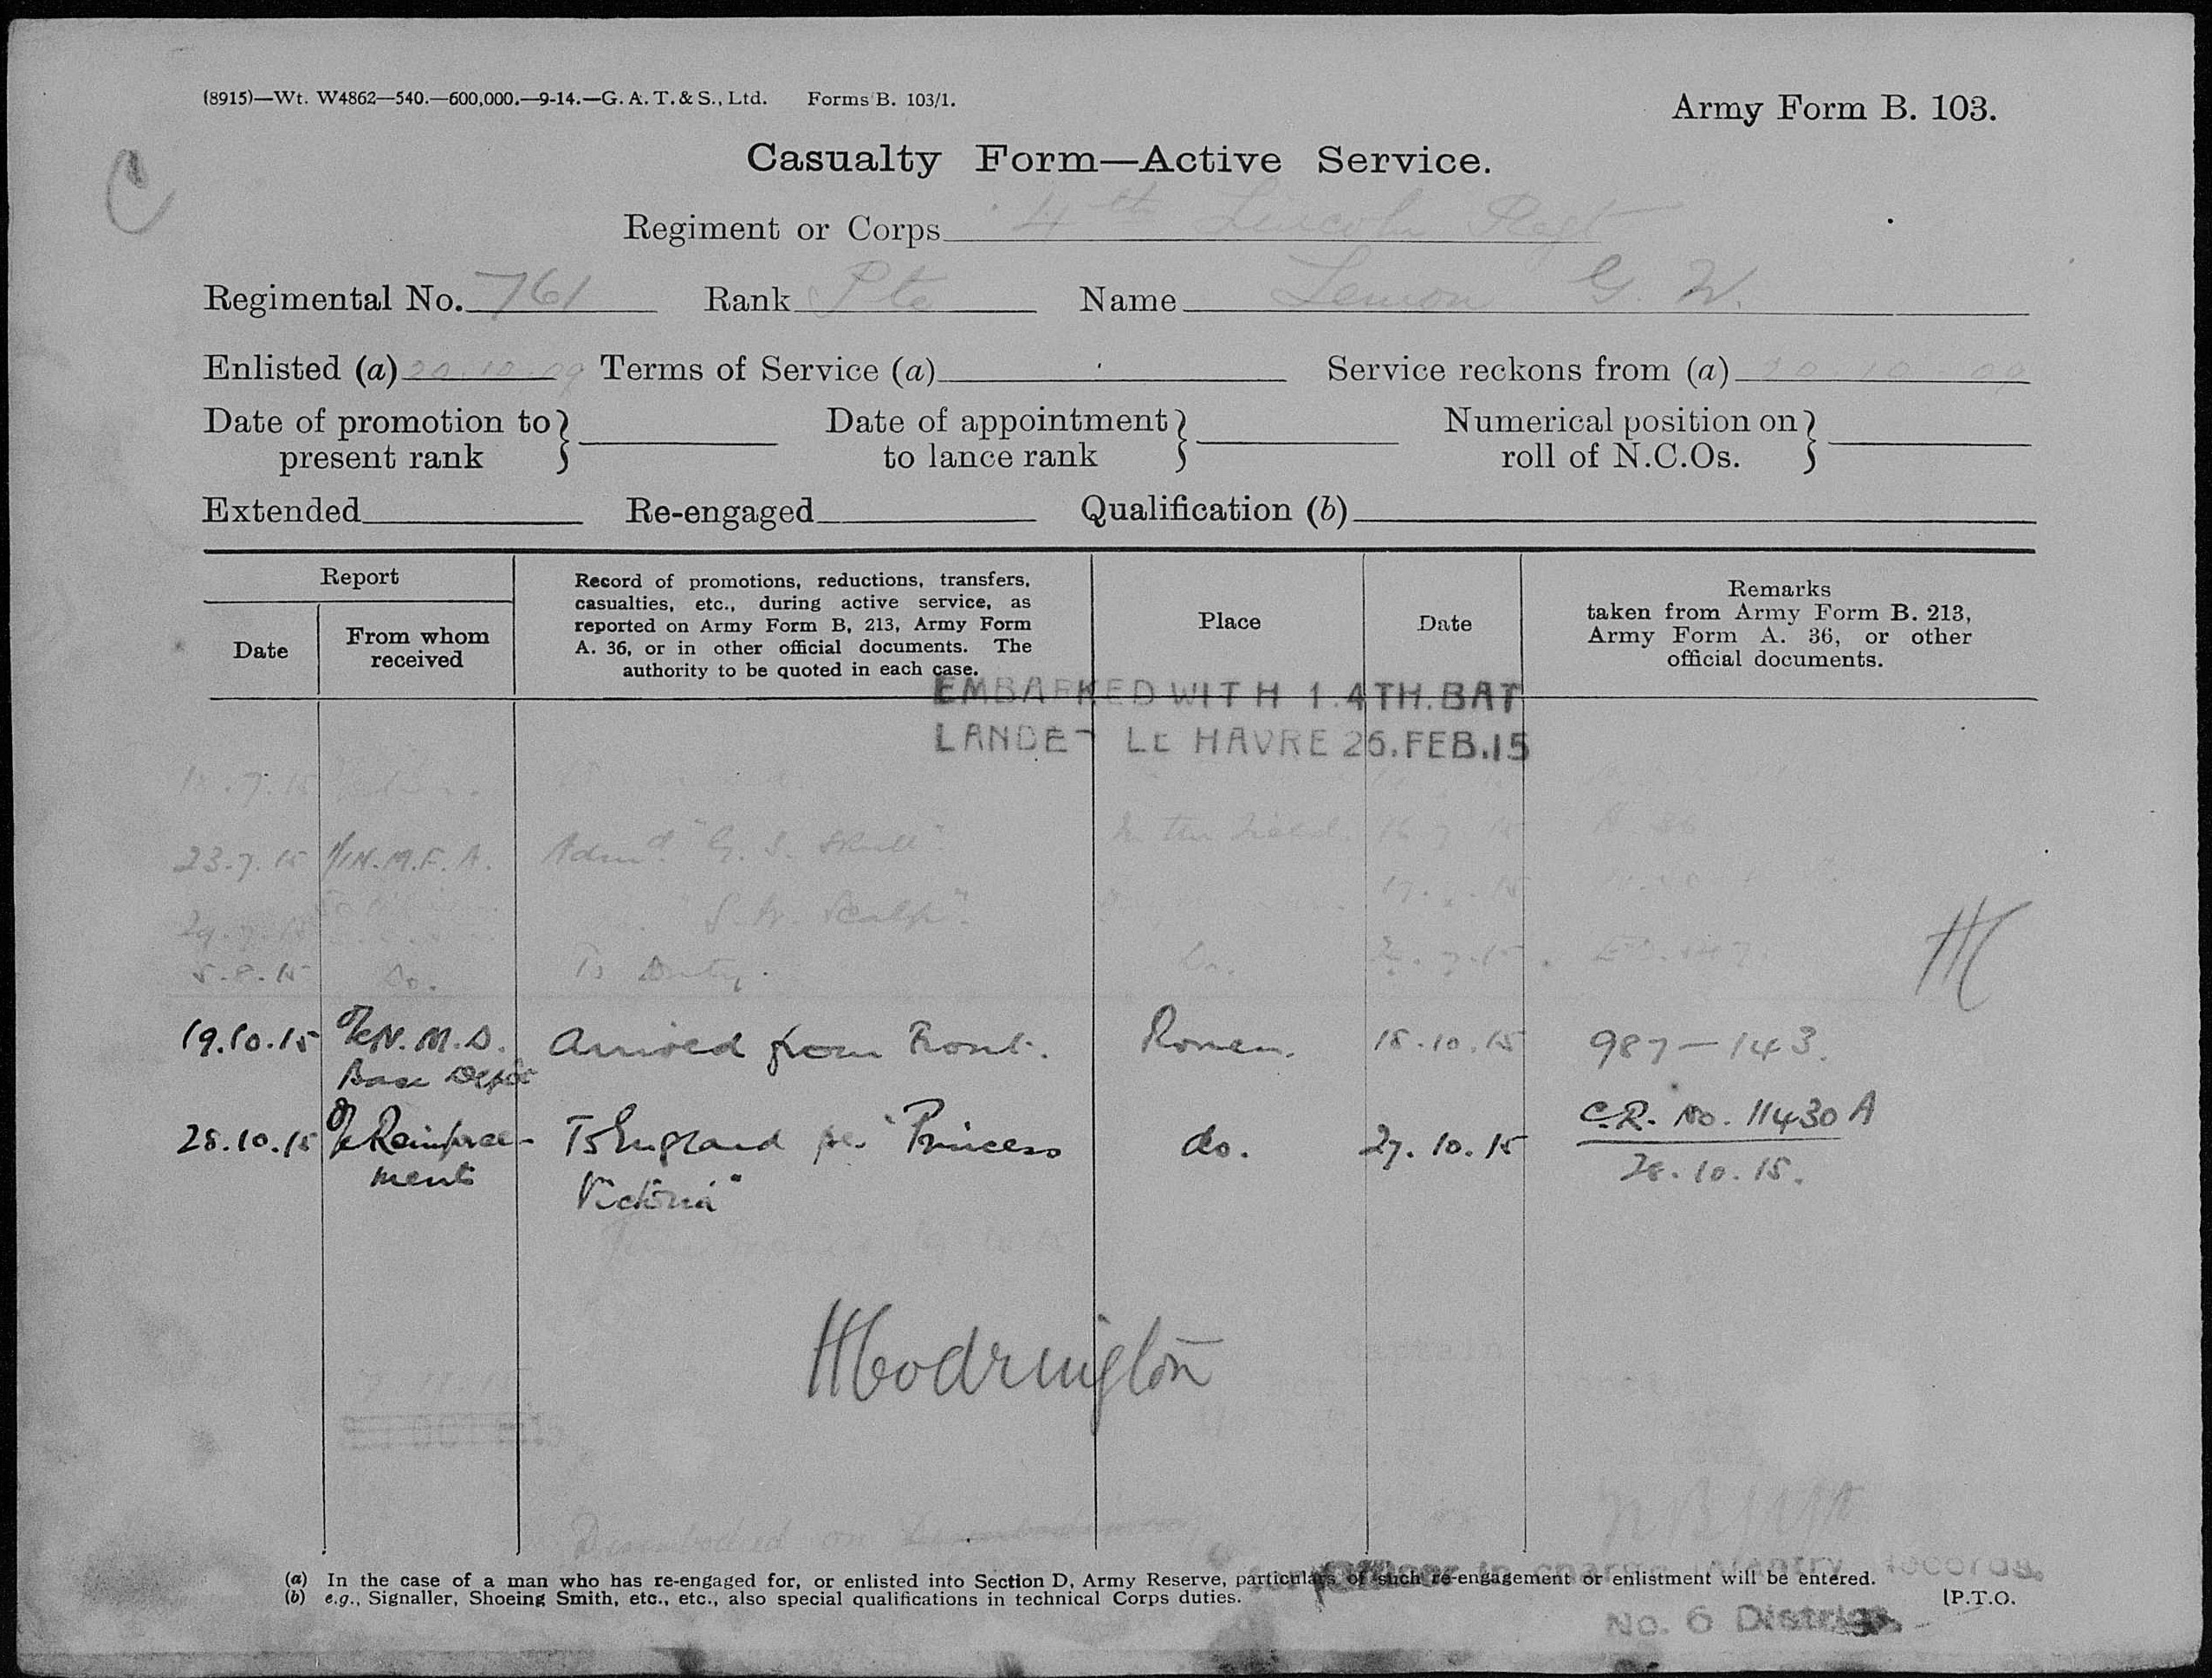 (8915)—Wt. W4862—540.—600,000.—9-14.—G. A. T. & S., Ltd. Forms B. 103/1.
Army Form B. 103.
C
Casualty Form—Active Service.
Regiment or Corps 4th Lincoln Regt
Regimental No. 761 Rank Pte Name Lemon G. W.
Enlisted (a) 20.10.09 Terms of Service (a) Service reckons from (a) 20.10.09
Date of promotion to present rank } Date of appointment to lance rank } Numerical position on roll of N.C.Os. }
Extended Re-engaged Qualification (b)
Report
Date
From whom received
Record of promotions, reductions, transfers,
casualties, etc., during active service, as
reported on Army Form B, 213, Army Form
A. 36, or in other official documents. The
authority to be quoted in each case.
Place
Date
Remarks
taken from Army Form B. 213,
Army Form A. 36, or other
official documents.
EMBARKED WITH 1.4TH.BAT
LANDE LE HAVRE 26.FEB.15
23.7.15 1/1 N.M.F.A. Admd "G. S. Skull" In the Field. 16 7 15
"S.W. Scalp"
5.8.15 Do. To Duty.
19.10.15 O/c N.M.D. Arrived from Front. Rouen. 18.10.15 987—143.
Base Depôt
28.10.15 O/c Reinforce- To England per "Princess do. 27.10.15 C.R. No. 11430 A
ments Victoria" 28.10.15.
H
HCodrington
Disembodied on
(a) In the case of a man who has re-engaged for, or enlisted into Section D, Army Reserve, particulars of such re-engagement or enlistment will be entered.
(b) e.g., Signaller, Shoeing Smith, etc., etc., also special qualifications in technical Corps duties.
[P.T.O.
Officer in charge Infantry Records,
No. 6 District.